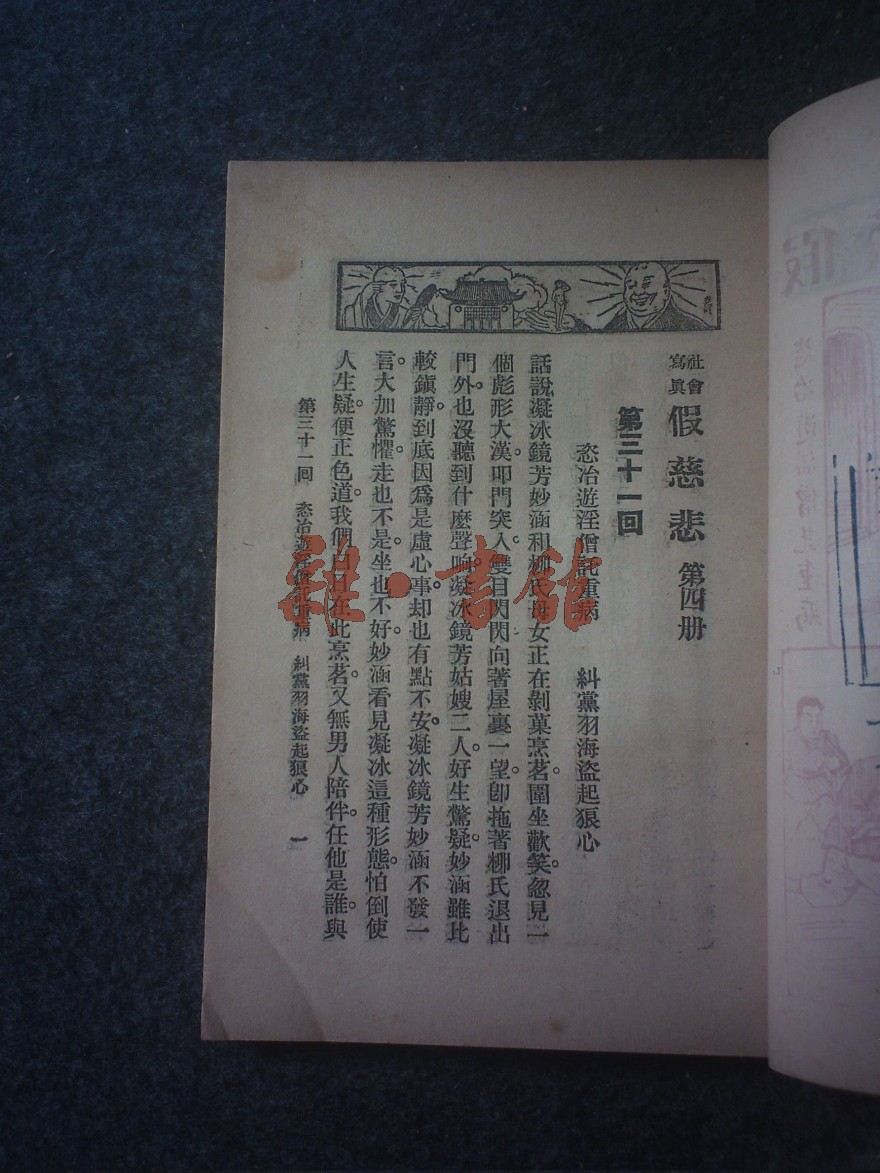 社會寫眞 假慈悲 第四册
第三十一回
恣冶遊淫僧託重病 糾黨羽海盜起狠心
話說凝冰鏡芳妙涵和柳氏母女正在剝菓烹茗。圍坐歡笑。忽見一
個彪形大漢。叩門突入。雙目閃閃。向著屋裏一望。卽拖著柳氏退出
門外。也沒聽到什麼聲响。凝冰鏡芳姑嫂二人。好生驚疑。妙涵雖比
較鎭靜。到底因爲是虛心事。却也有點不安。凝冰鏡芳妙涵不發一
言。大加驚懼。走也不是。坐也不好。妙涵看見凝冰這種形態。怕倒使
人生疑。便正色道。我們日日在此烹茗。又無男人陪伴。任他是誰。與
第三十一回 恣冶遊淫僧託重病 糾黨羽海盜起狠心 一
雜·書館
假